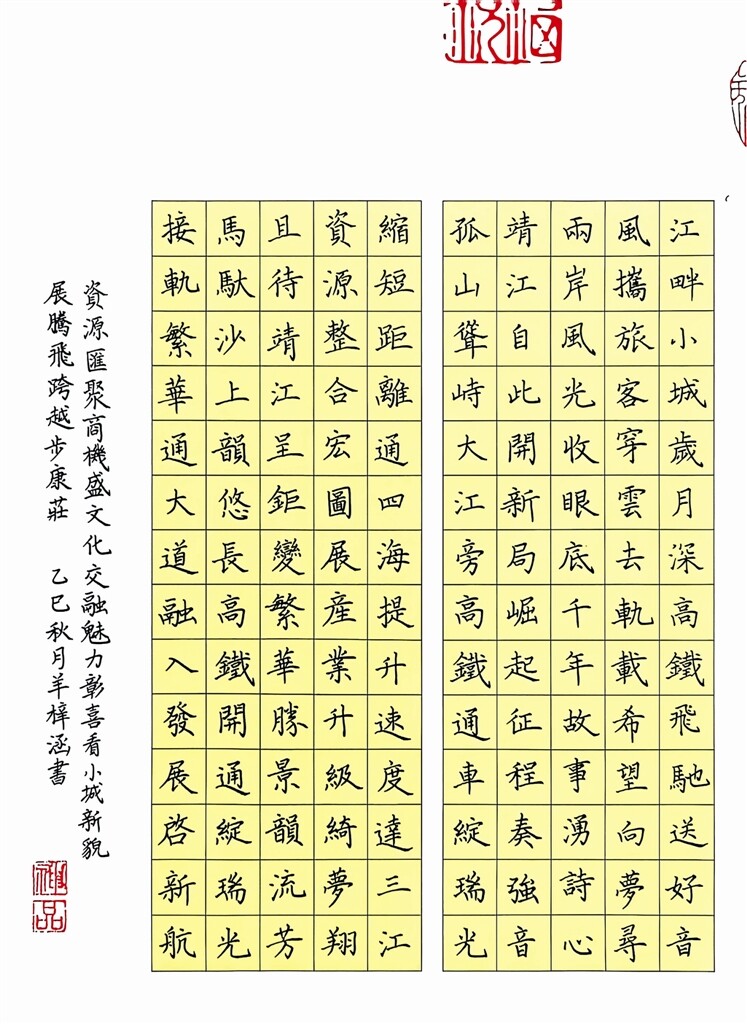 江畔小城歲月深高鐵飛馳送好音
風攜旅客穿雲去軌載希望向夢尋
兩岸風光收眼底千年故事湧詩心
靖江自此開新局崛起征程奏強音
孤山聳峙大江旁高鐵通車綻瑞光
縮短距離通四海提升速度達三江
資源整合宏圖展産業升級綺夢翔
且待靖江呈鉅變繁華勝景韻流芳
馬馱沙上韻悠長高鐵開通綻瑞光
接軌繁華通大道融入發展啓新航
資源匯聚商機盛文化交融魅力彰喜看小城新貌
展騰飛跨越步康莊 乙巳秋月羊梓涵書